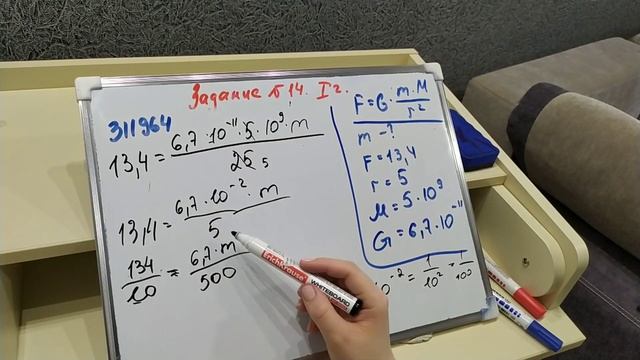 Задание Б14. I г.
311964
13,4 = 6,7 · 10⁻¹¹ · 5 · 10⁹ · m / 25 5
13,4 = 6,7 · 10⁻² · m / 5
134 / 10 = 6,7 · m / 500
F = G · m · M / r²
m - ?
F = 13,4
r = 5
M = 5 · 10⁹
G = 6,7 · 10⁻¹¹
10⁻² = 1 / 10² = 1 / 100
ErichKrause
WHITEBOARD